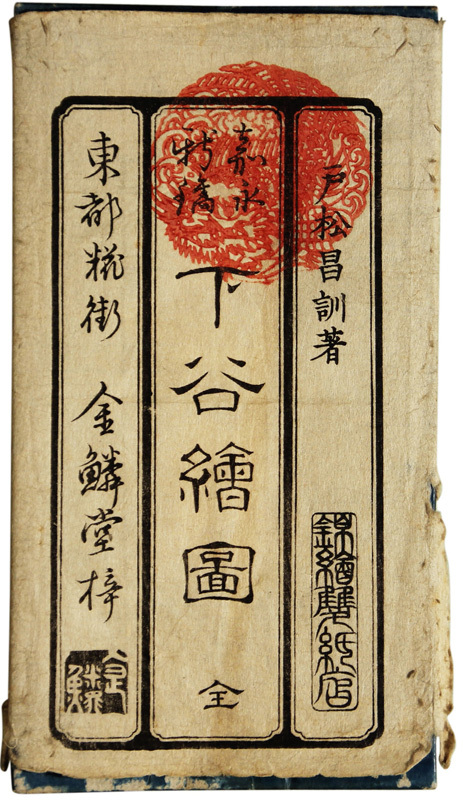 戸松昌訓著
錦繪雙紙店
嘉永
新鐫
下谷繪圖 全
東都糀街 金鱗堂梓